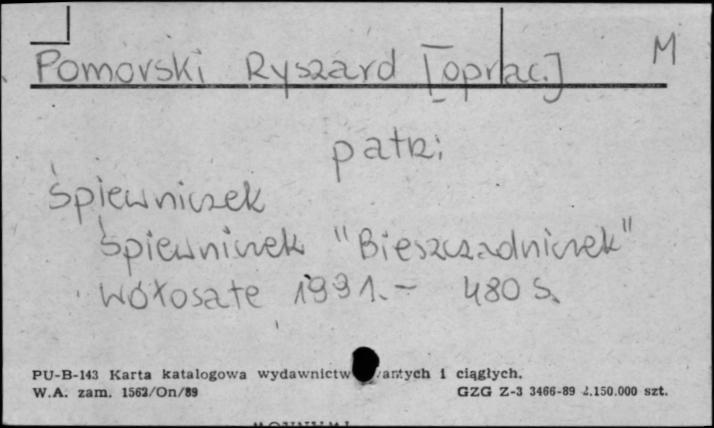 Pomorski Ryszard [oprac.] M
patrz:
Śpiewniczek
Śpiewniczek "Bieszczadniczek"
Wołosate 1991. - 480 s.
PU-B-143 Karta katalogowa wydawnictw zwartych i ciągłych.
W.A. zam. 1562/On/89 GZG Z-3 3466-89 2.150.000 szt.